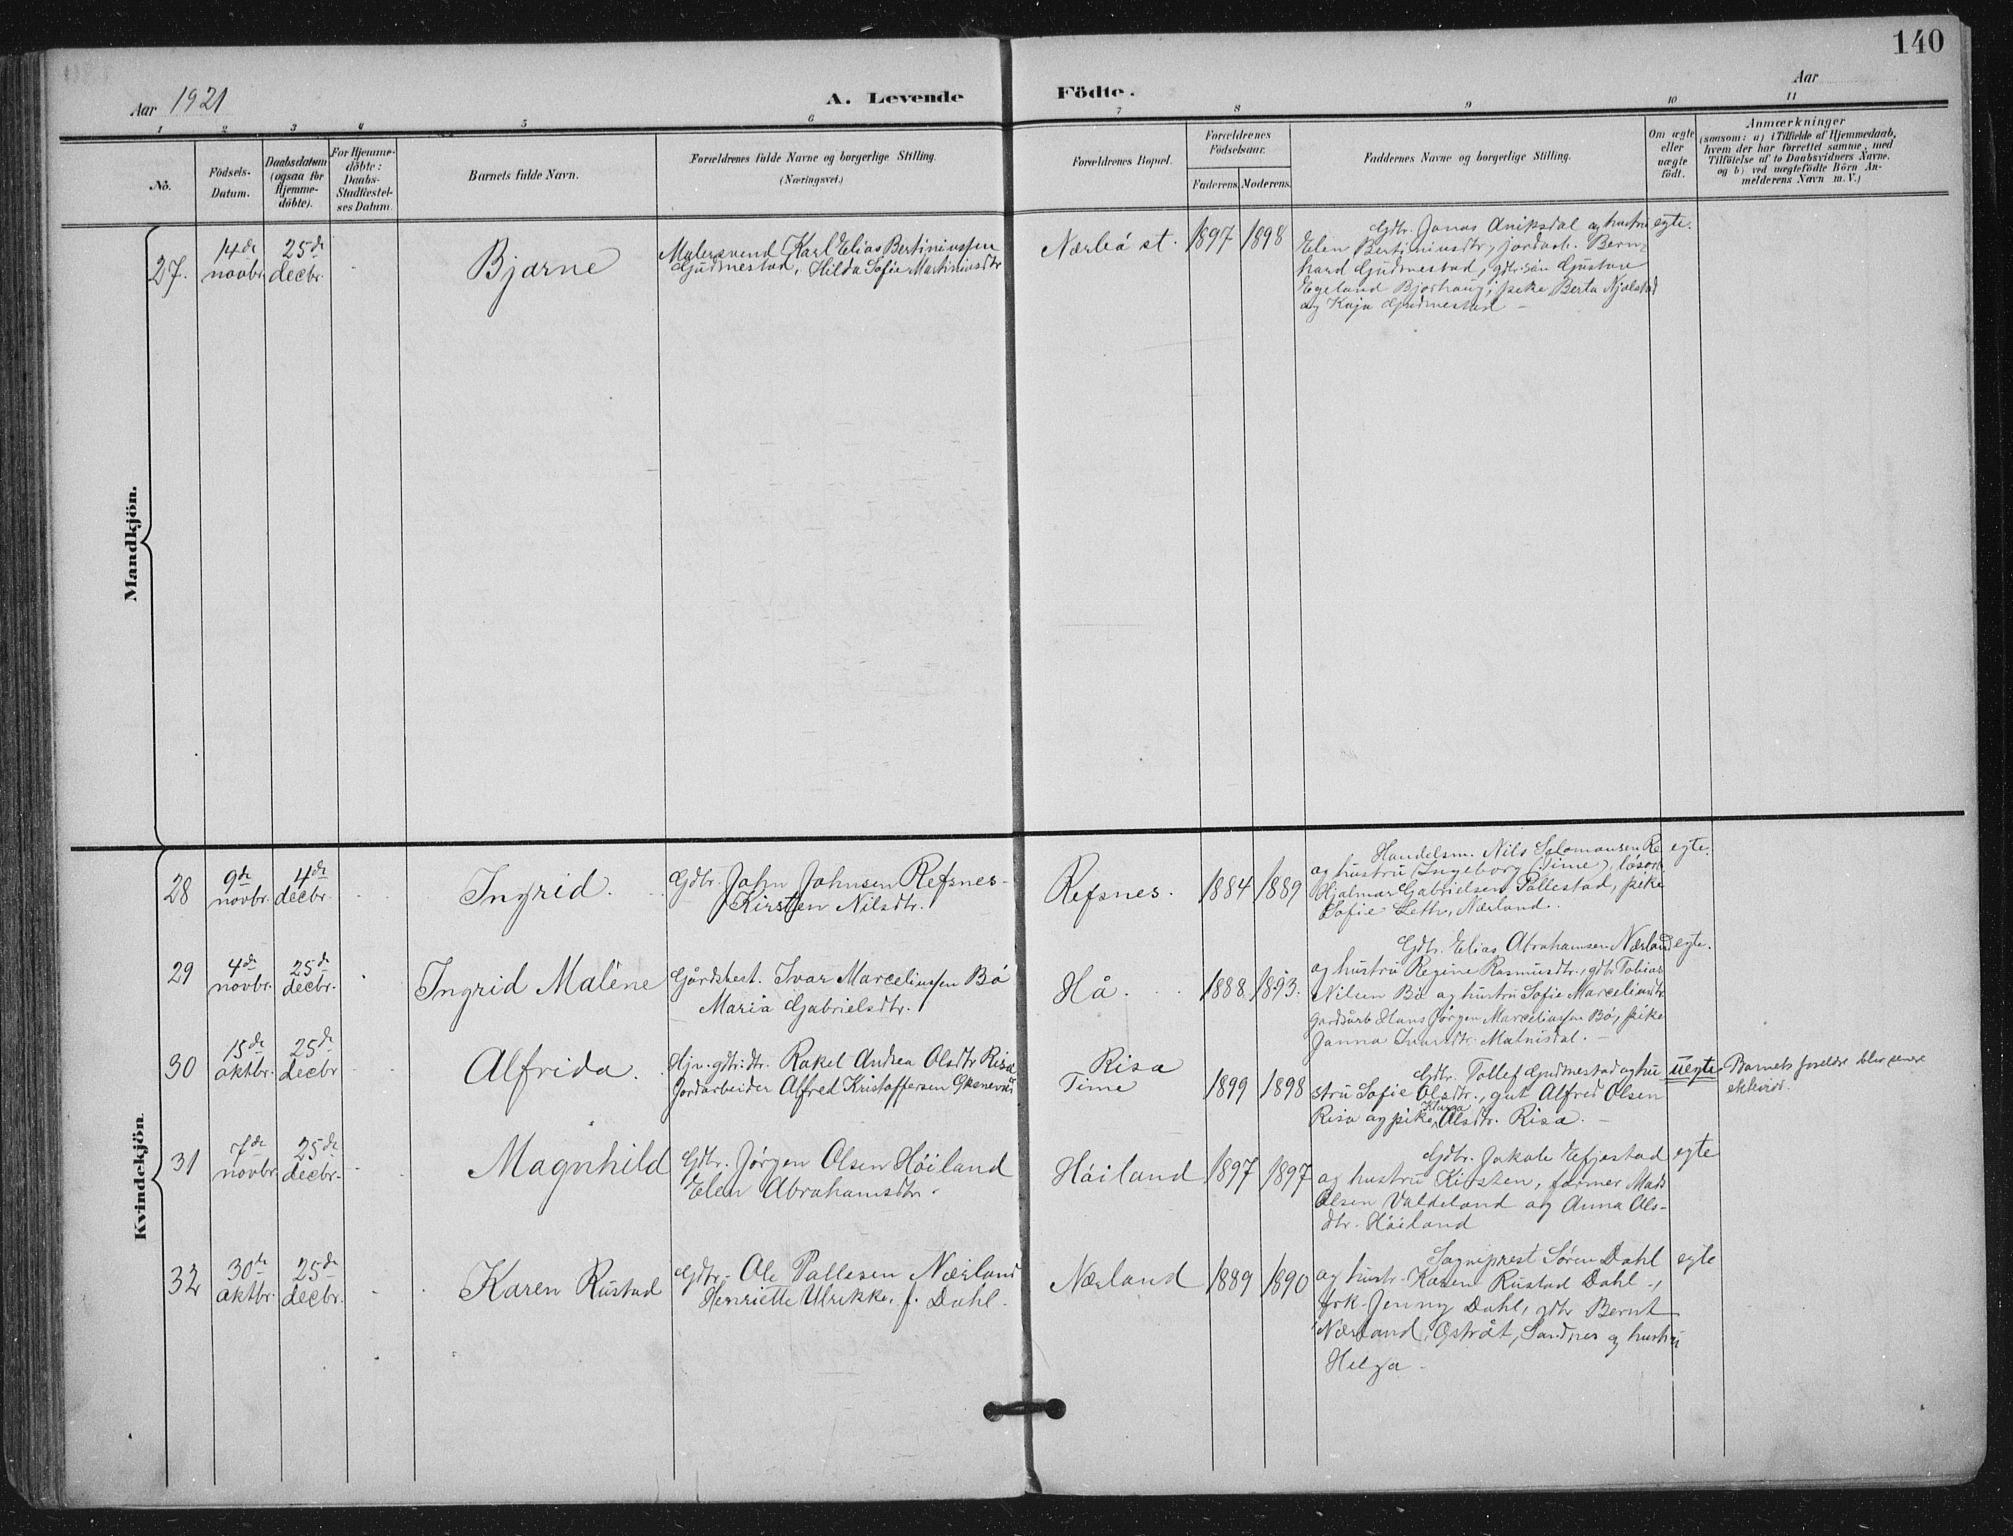 140
Aar 1921
A. Levende Födte.
Aar
1 2 3 4 5 6 7 8 9 10 11
No.
Födsels-
Datum.
Daabsdatum
(ogsaa for
Hjemme-
döbte).
For Hjemme-
döbte:
Daabs-
Stadfæstel-
ses Datum.
Barnets fulde Navn.
Forældrenes fulde Navne og borgerlige Stilling.
(Næringsvei.)
Forældrenes Bopæl.
Forældrenes
Födselsaar.
Faderens. Moderens.
Faddernes Navne og borgerlige Stilling.
Om ægte
eller
uægte
födt.
Anmærkninger
(saasom: a) i Tilfælde af Hjemmedaab,
hvem der har forrettet samme, med
Tilföielse af to Daabsvidners Navne.
og b) ved uægtefödte Börn An-
melderens Navn m. V.)
Mandkjön.
27.
14de
novbr.
25de
decbr.
Bjarne
Malersvend Karl Elias Bertiniussen
Gudmestad, Hilda Sofie Martiniusdtr
Nærbö st.
1897 1898
Gdbr. Jonas Aniksdal og hustru
Elen Bertiniusdtr, jordarb. Bern-
hard Gudmestad, gdbr.sön Gustave
Egeland Bjorhaug, pike Berta Njølstad
og Kaja Gudmestad –
egte.
Kvindekjön
28
9de
novbr.
4de
decbr.
Ingrid.
Gdbr. John Johnsen Refsnes-
Kirsten Nilsdtr.
Refsnes.
1884 1889
Handelsm. Nils Salomonsen Re
og hustru Ingeborg (Time), løsarb.
Hjalmar Gabrielsen Pollestad, pike
Sofie Seth, Nærland.
egte.
29
4de
novbr.
25de
decbr.
Ingrid Maléne
Gårdsbest. Ivar Marceliussen Bö
Maria Gabrielsdtr.
Hå.
1888. 1893.
Gdbr. Elias Abrahamsen Nærland
og hustru Regine Rasmusdtr., gdbr. Tobias
Nilsen Bö og hustru Sofie Marceliusdtr
gardsarb Hans Jørgen Marceliussen Bö, pike
Janna Ivarsdtr. Malmisdal. –
egte.
30
15de
oktbr.
25de
decbr
Alfrida.
Hjv. gdbrdtr. Rakel Andrea Olsdtr Risa
Jordarbeider Alfred Kristoffersen Oksnevad
Risa
Time
1899 1898
Gdbr. Tollef Gudmestad og hu
stru Sofie Olsdtr., gut Alfred Olsen
Risa og pike Klara Olsdtr. Risa. –
uegte
Barnets foreldre blev senere
ektevied.
31
7de
novbr.
25de
decbr.
Magnhild
Gdbr. Jørgen Olsen Höiland
Elen Abrahamsdtr.
Höiland
1897 1897
Gdbr. Jakob Efjestad
og hustru Kirsten, farmer Mads
Olsen Valdeland og Anna Ols-
dtr. Höiland
egte
32
30te
oktbr.
25de
decbr.
Karen Rustad
Gdbr. Ole Pallesen Nærland
Henriette Ulrikke, f. Dahl.
Nærland
1889 1890
Sogneprest Sören Dahl
og hustr. Karen Rustad Dahl.,
frk. Jenny Dahl, gdbr Bernt
Nærland, Østråt, Sandnes og hustru
Helga –
egte